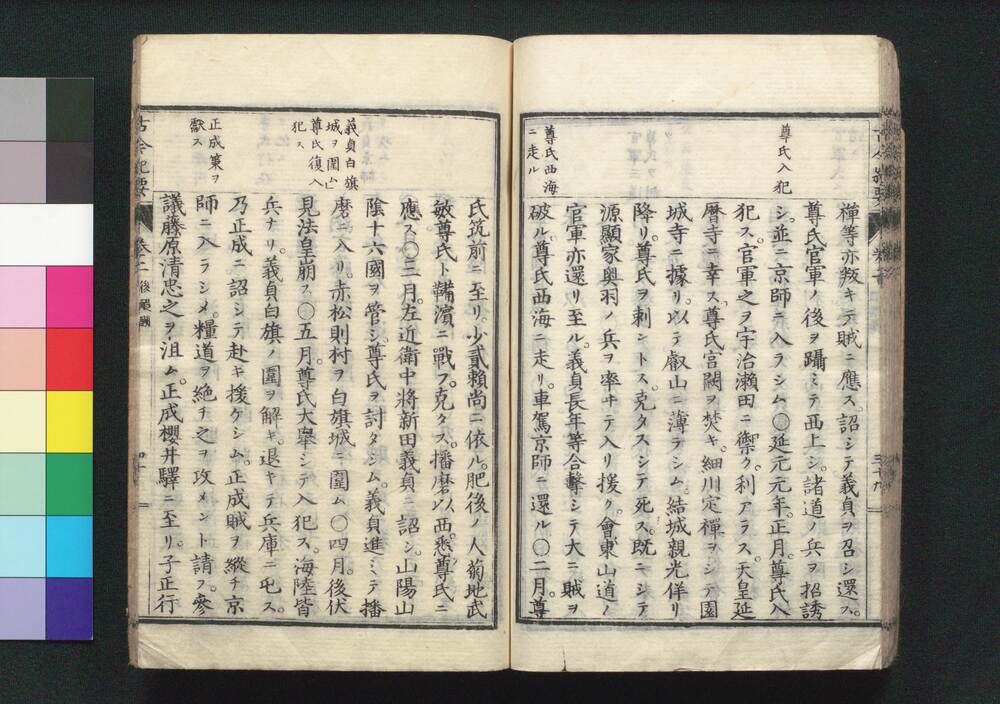 尊氏入犯
尊氏西海
ニ走ル
禪等亦叛キテ賊ニ應ス。詔シテ義貞ヲ召シ還ス。
尊氏官軍ノ後ヲ躡ミテ西上シ。諸道ノ兵ヲ招誘
シ。並ニ京師ニ入ラシム〇延元元年。正月。尊氏入
犯ス。官軍之ヲ宇治瀬田ニ禦ク。利アラス。天皇延
暦寺ニ幸ス。尊氏宮闕ヲ焚キ。細川定禪ヲシテ園
城寺ニ據リ。以テ叡山ニ薄ラシム。結城親光佯リ
降リ。尊氏ヲ刺ントス。克タスシテ死ス。既ニシテ
源顯家奥羽ノ兵ヲ率ヰテ入リ援ク。會東山道ノ
官軍亦還リ至ル。義貞長年等合擊シテ大ニ賊ヲ
破ル。尊氏西海ニ走リ。車駕京師ニ還ル〇二月。尊
義貞白旗
城ヲ圍ム
尊氏復入
犯ス
正成策ヲ
獻ス
氏筑前ニ至リ。少貳賴尚ニ依ル。肥後ノ人菊地武
敏尊氏ト鞆濱ニ戰フ。克タス。播磨以西。悉尊氏ニ
應ス〇三月。左近衛中將新田義貞ニ詔シ。山陽山
陰十六國ヲ管シ。尊氏ヲ討タシム。義貞進ミテ播
磨ニ入リ。赤松則村ヲ白旗城ニ圍ム〇四月。後伏
見法皇崩ス〇五月。尊氏大舉シテ入犯ス。海陸皆
兵ナリ。義貞白旗ノ圍ヲ解キ。退キテ兵庫ニ屯ス。
乃正成ニ詔シテ赴キ援ケシム。正成賊ヲ縱チ京
師ニ入ラシメ。糧道ヲ絶チ之ヲ攻メント請フ。參
議藤原清忠之ヲ沮ム。正成櫻井驛ニ至リ。子正行
古今紀要
卷二
後醍醐